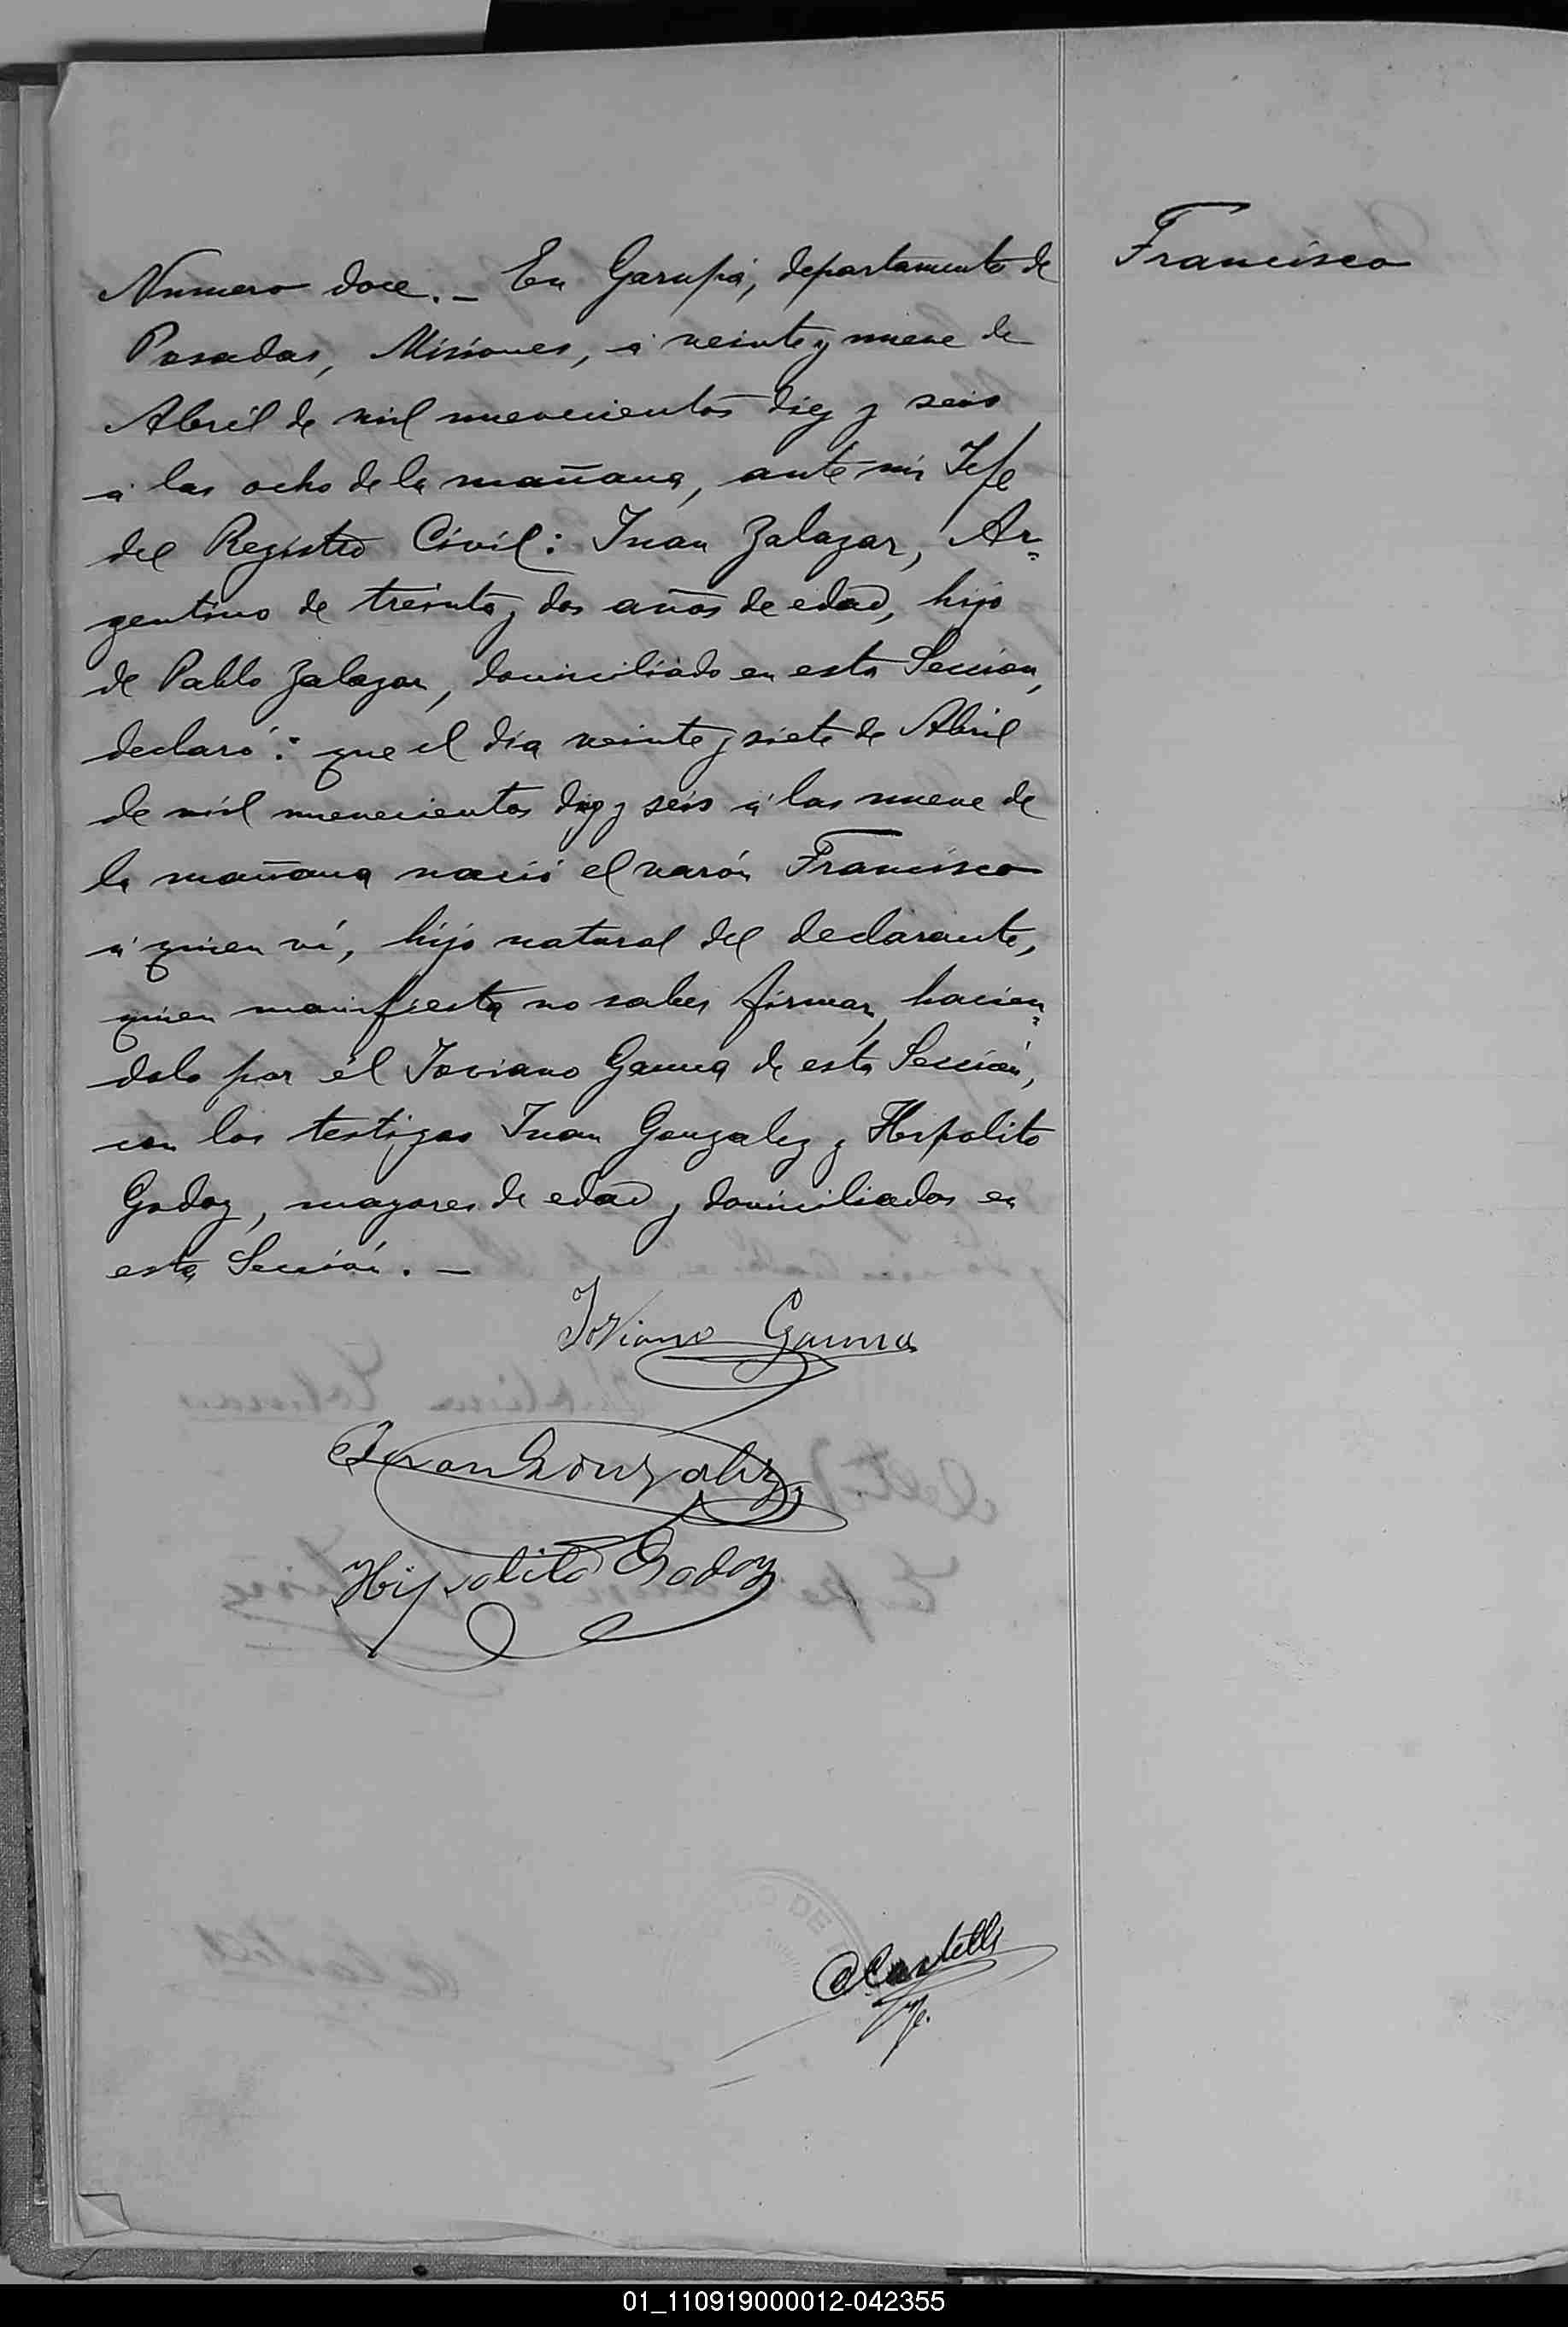 Francisco
Numero doce. — En Garupá, departamento de
Posadas, Misiones, á veinte y nueve de
Abril de mil novecientos diez y seis
á las ocho de la mañana, ante mi Jefe
del Registro Civil: Juan Zalazar, Ar=
gentino de treinta y dos años de edad, hijo
de Pablo Zalazar, domiciliado en esta Seccion,
declaró: que el día veinte y siete de Abril
de mil novecientos diez y seis á las nueve de
la mañana nació el varón Francisco
á quien ví, hijo natural del declarante,
quien manifiesta no saber firmar, hacien=
dolo por él Joviano Gauna de esta Sección,
con los testigos Juan Gonzalez y Hipolito
Godoy, mayores de edad y domiciliados en
esta Sección. —
Joviano Gauna
Juan Gonzalez
Hipolito Godoy
DE
Castelli
Jefe.
01_110919000012-042355